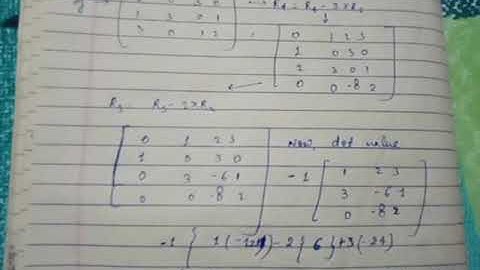 1 3 0 1
3 0 1 2
0 1 2 3
1 0 3 0
2 3 0 1
0 0 -8 2
R3 = R3 - 2×R2
0 1 2 3
1 0 3 0
0 3 -6 1
0 0 -8 2
Now, det value
-1
1 2 3
3 -6 1
0 -8 2
-1 { 1 ( ) - 2 { 6 } + 3 (-24)